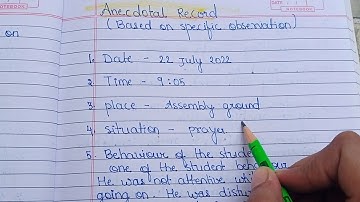 Anecdotal Record
(Based on specific observation)
on
1. Date - 22 July 2022
2. Time - 9:05
3. place - Assembly ground
4. situation - praye
5. Behaviour of the stude
one of the student behaviour
He was not attentive whi
going on. He was distur